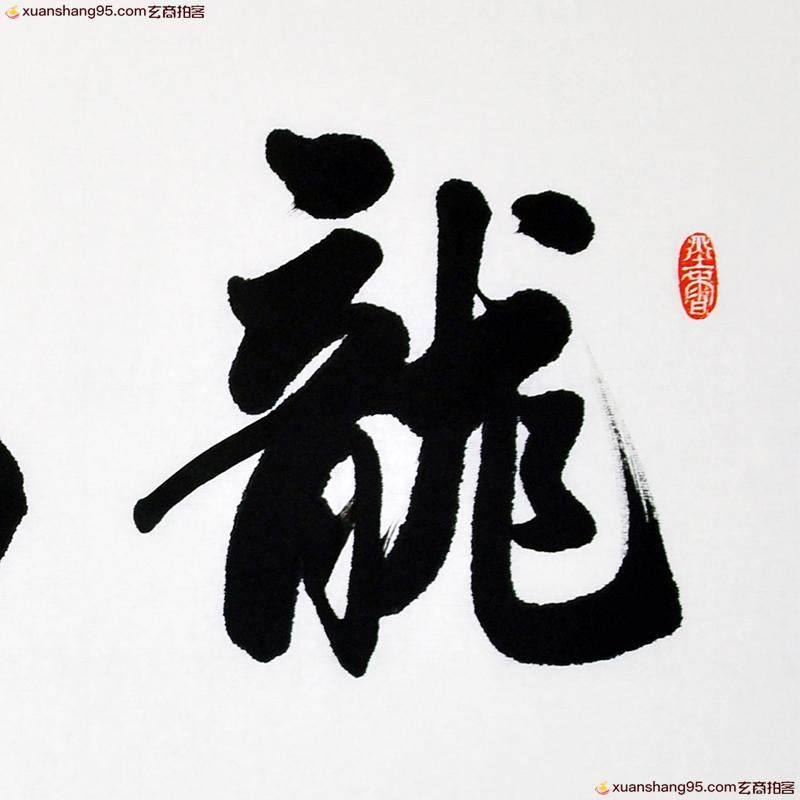 xuanshang95.com玄商拍客
龍
墨香
xuanshang95.com玄商拍客